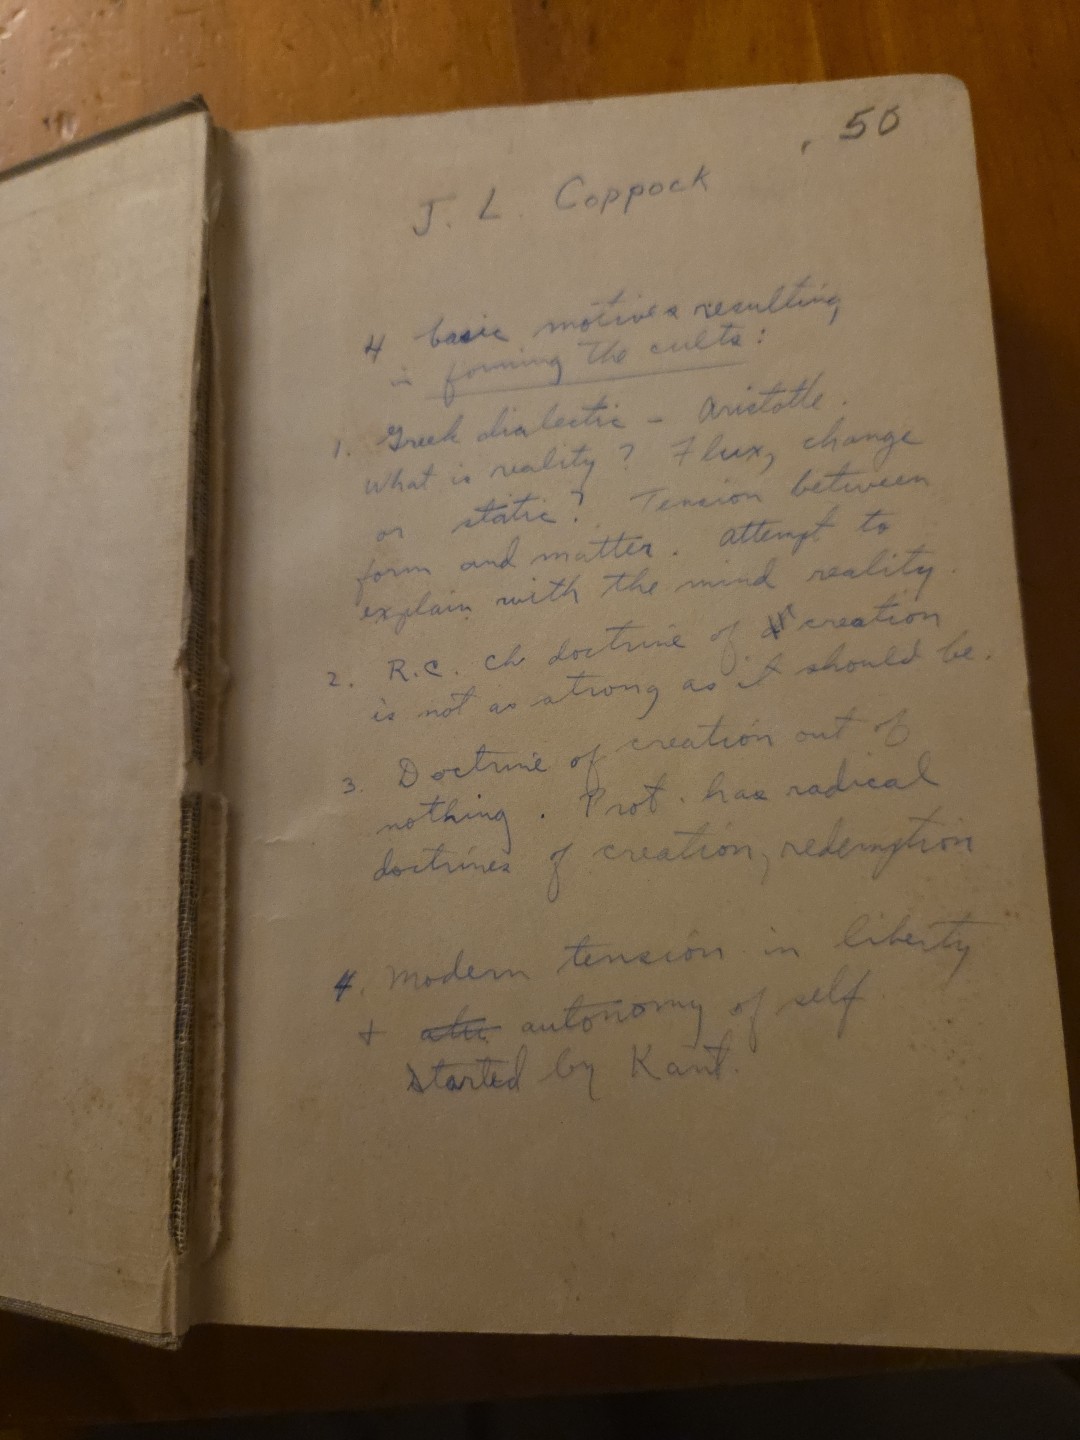 . 50
J. L. Coppock
4 basic motives resulting
in forming the cults:
1. Greek dialectic - Aristotle.
What is reality? Flux, change
or static? Tension between
form and matter. Attempt to
explain with the mind reality.
2. R.C. Ch doctrine of creation
is not as strong as it should be.
3. Doctrine of creation out of
nothing. Prot. has radical
doctrines of creation, redemption
4. Modern tension in liberty
+ autonomy of self
started by Kant.